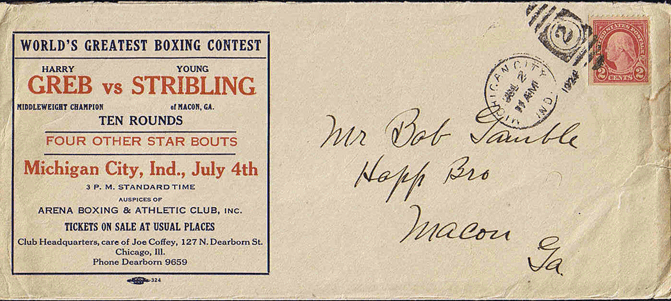 WORLD'S GREATEST BOXING CONTEST
HARRY YOUNG
GREB vs STRIBLING
MIDDLEWEIGHT CHAMPION of MACON, GA.
TEN ROUNDS
FOUR OTHER STAR BOUTS
Michigan City, Ind., July 4th
3 P. M. STANDARD TIME
AUSPICES OF
ARENA BOXING & ATHLETIC CLUB, INC.
TICKETS ON SALE AT USUAL PLACES
Club Headquarters, care of Joe Coffey, 127 N. Dearborn St.
Chicago, Ill.
Phone Dearborn 9659
324
MICHIGAN CITY
IND.
2
AM
1924
2
2 CENTS 2
Mr Bob Gamble
Happ Bro
Macon
Ga.